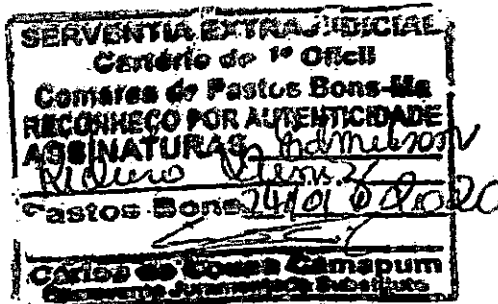 SERVENTIA EXTRAJUDICIAL
Cartório do 1º Ofício
Comarca de Pastos Bons-Ma
RECONHEÇO POR AUTENTICIDADE
ASSINATURAS
Pastos Bons 24/01
Carlos de Sousa Camapum
Escrevente Juramentado Substituto